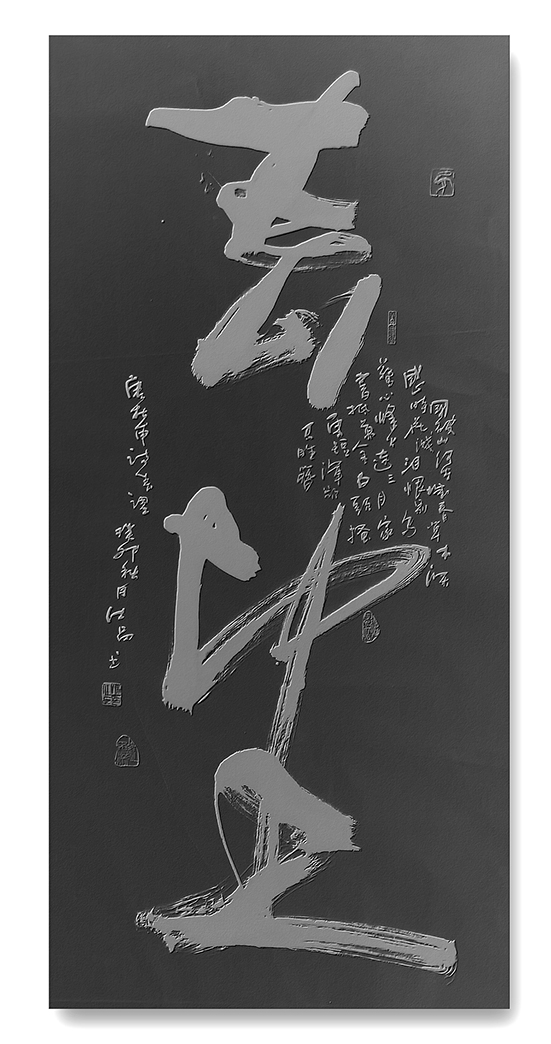 春望
國破山河在城春草木深
感時花濺泪恨别鸟
驚心烽火連三月家
書抵萬金白頭搔
更短渾欲
不勝簪
唐杜甫诗春望
癸卯秋月